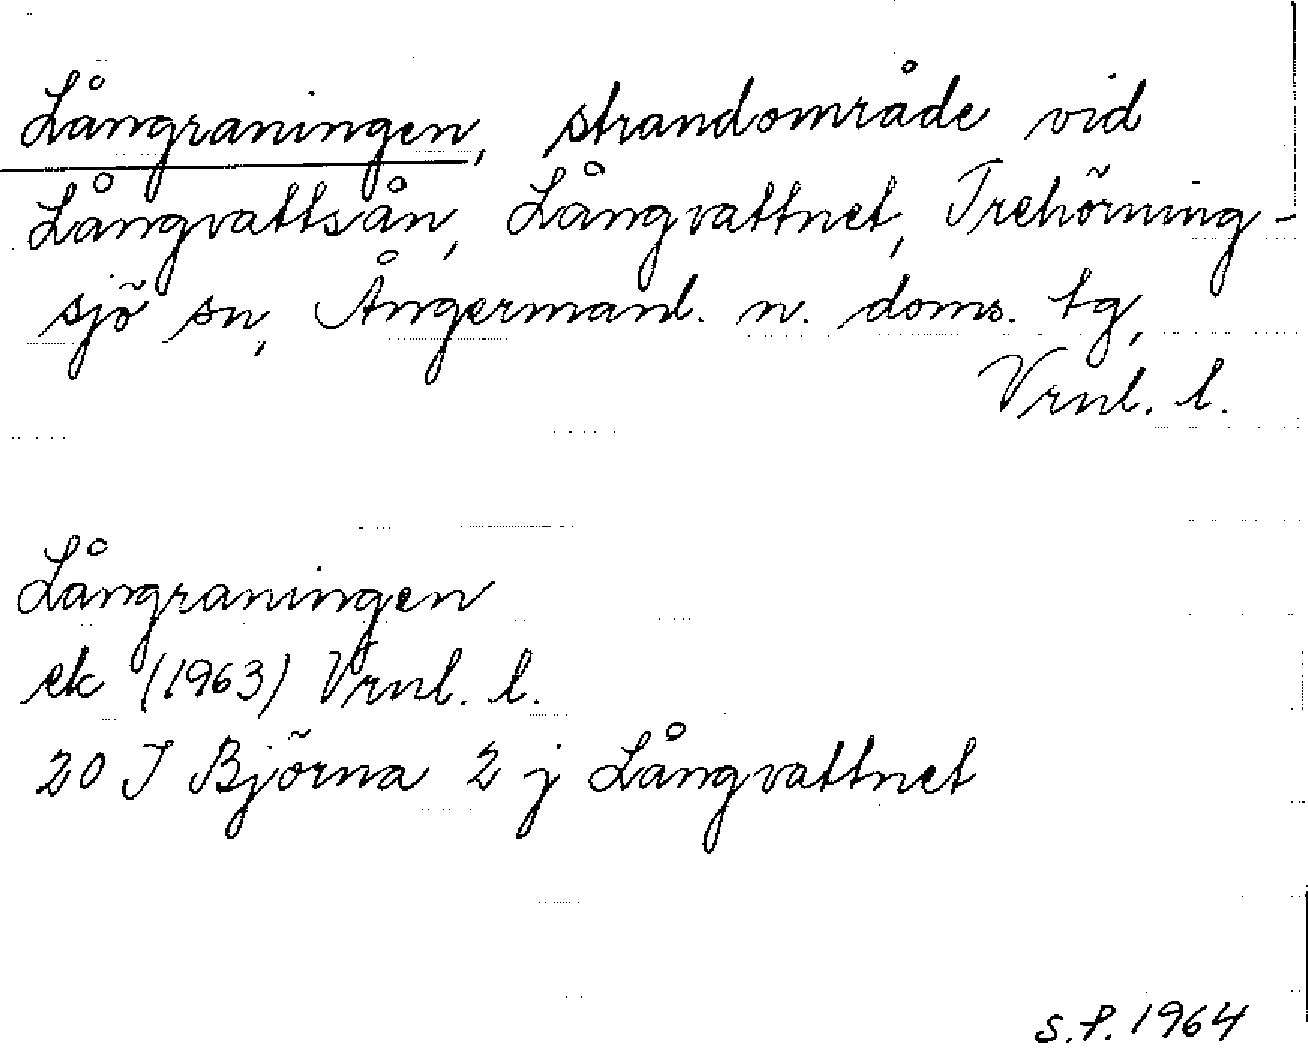 Långraningen, strandområde vid
Långvattsån, Långvattnet, Trehörning-
sjö sn, Ångermanl. n. doms. tg,
Vrnl. l.
Långraningen
ek (1963) Vrnl. l.
20 I Björna 2 j Långvattnet
S.P. 1964